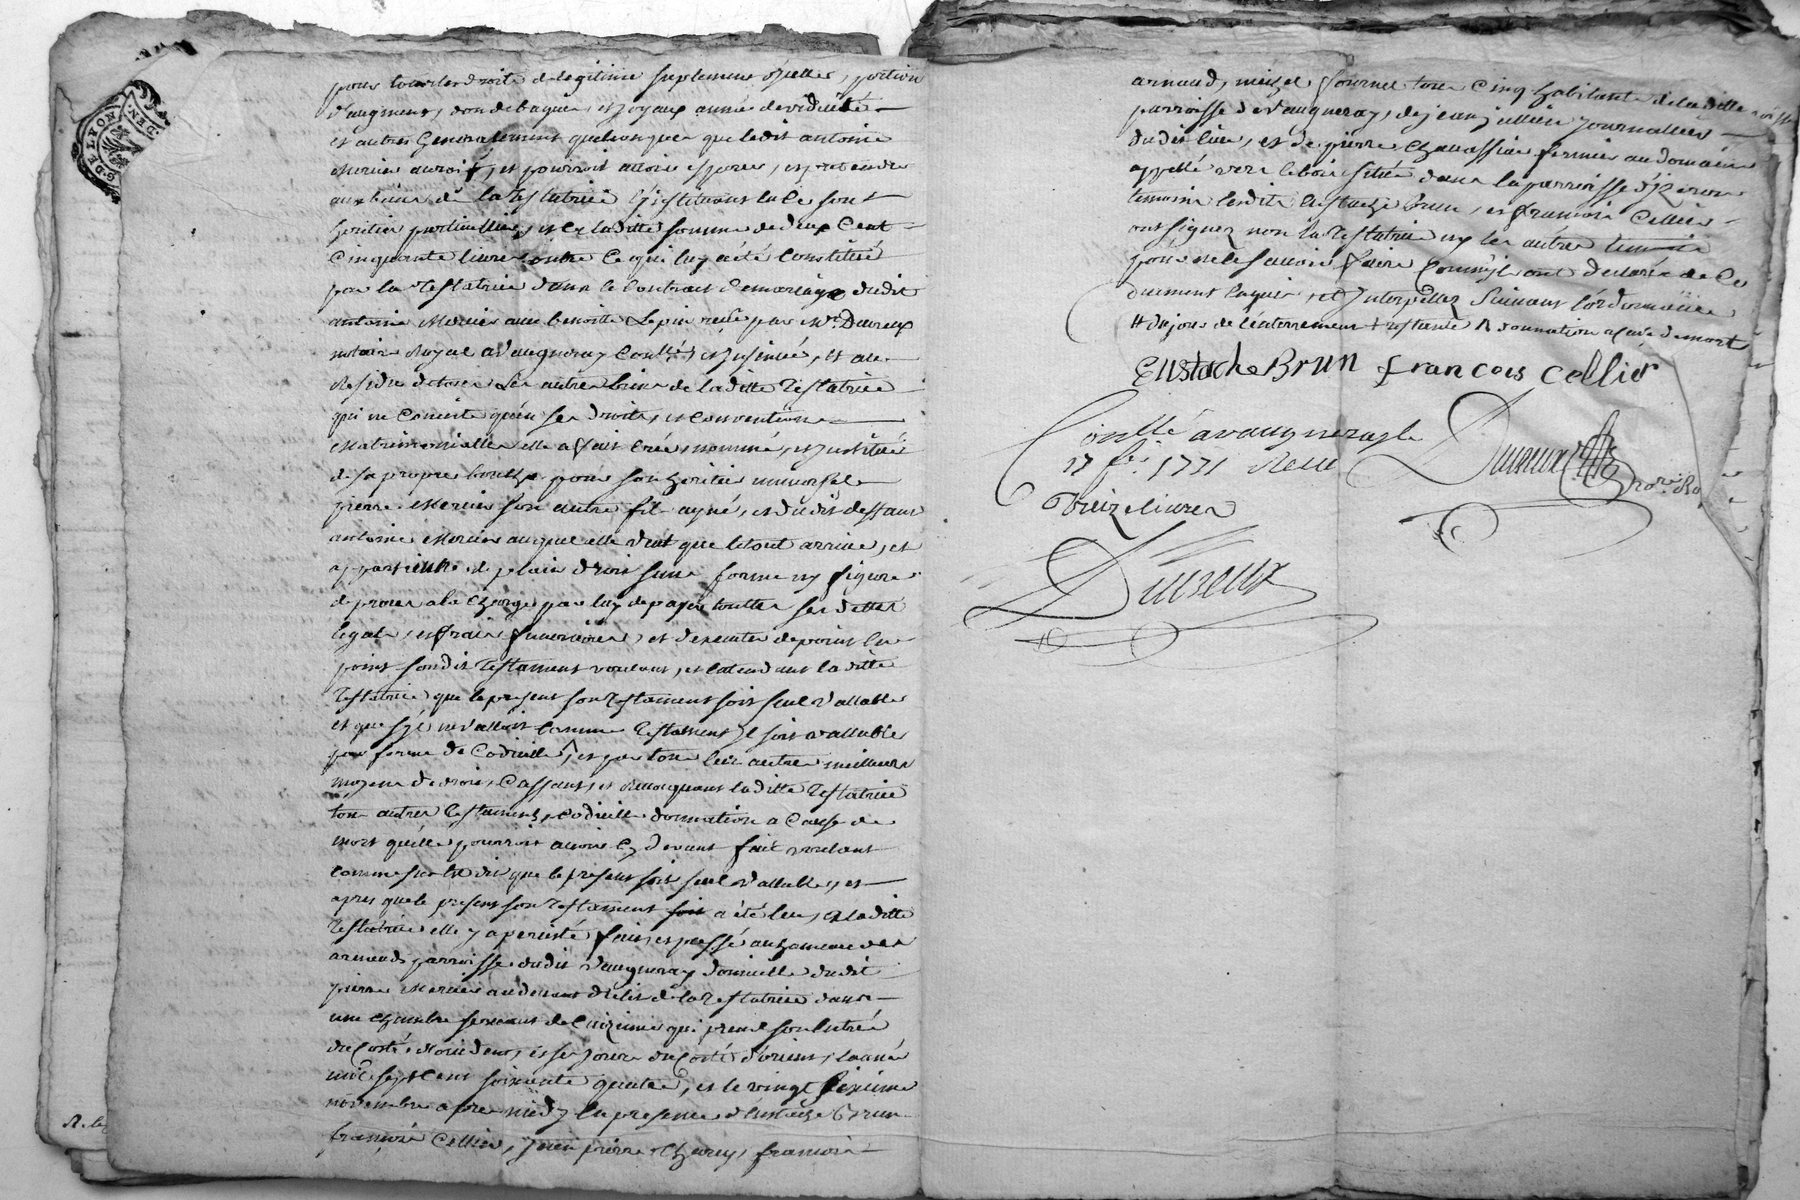 G.DE LYON
DEN.
pour tous les droits de legitime suplement d'icelles, portion
d'augment, don de bagues, et joyaux année de viduité
et autres Generalement quelconques que ledit antoine
Mercier auroit, et pourroit avoir esperer, et pretendre
aux biens de la Testatrice l'jstituant en ce son
heritier particullier, et en laditte somme de deux Cent
Cinquante livres outre Ce qui luy a été Constitué
par la Testatrice dans le Contrat de mariage dudit
antoine Mercier avec benoitte Lepin reçu par Me Duvreux
notaire Royal a Vaugneray Conllé, et jnsinué, et au
Residu de tous les autres biens de laditte Testatrice
qui ne Consiste qu'en ses droits, et conventions
Matrimonialles elle a fait Créé, nommé, et jnstitué
de sa propre bouche pour son heritier universel
pierre Mercier son autre fils ayné, et dudit deffunt
antoine Mercier auquel elle veut que le tout arrive, et
appartienne de plain droit sans forme ny figure
de procès a la Charge par luy de payer touttes ses dettes
legats, et frais funeraires, et d'executer de point en
point sondit Testament voulant, et entendant laditte
Testatrice que le present son Testament soit seul vallable
et que s'il ne valloit Comme Testament Il soit vallable
par forme de Codicille, et par tous les autres meilleurs
moyens de droit, Cassant, et Revoquant laditte Testatrice
tous autres Testaments, Codicille donnation a Cause de
mort qu'elle pourroit avoir Cy devant fait voulant
comme sus est dit que le present soit seul vallable, et
apres que le present son Testament soit a été leu, a laditte
Testatrice elle y a persisté fait et passé au hameau des
arnauds parroisse dudit Vaugneray domicille dudit
pierre Mercier au devant du lit de la Testatrice dans
une chambre servant de Cuizine qui prend son Entrée
du Costé d'occident, et ses jours du Costé d'orient, l'année
mil sept Cent soixante quatre, et le vingt sixieme
novembre apres midy En presence d'Eustache Brun
françois Cellier, Jean pierre Thevey, francois
arnaud, meizel fournel tous Cinq habitants de laditte
parroisse de Vaugneray, de jean jullien journallier
dudit lieu, et de pierre Chavassieu fermier au domaine
appellé vers le bois situé dans la parroisse d'jzeron
temoins lesdits Eustache brun, et francois Cellier
ont signez non la Testatrice ny les autres temoins
pour ne le sçavoir faire Comm'ils ont declarés de Ce
duement Enquis, et Interpellez suivant l'ordonnance
# du jour de l'enterrement + restante R donnation a cause de mort
Eustache Brun francois Cellier
Conllé a vaugneray le
17 fer 1771 Reçu
treize livres
Duvreux
nore. Ro
Duvreux